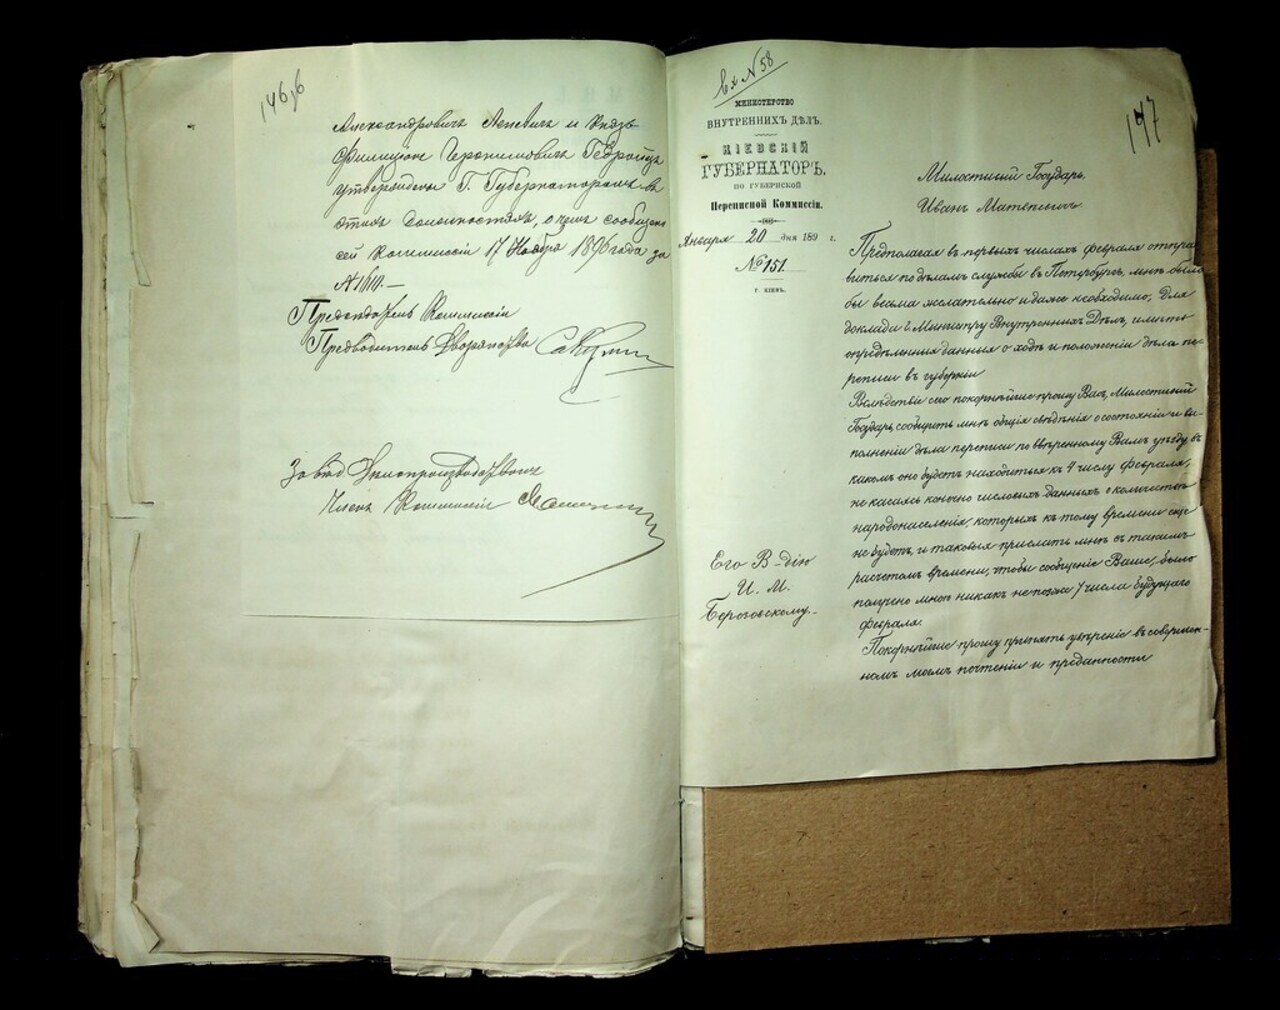 146об
Александровичъ Лепевичъ и Князь
Филиціанъ Іеронимовичъ Гедройцъ
утверждены Г. Губернаторомъ въ
этихъ должностяхъ, о чемъ сообщено
сей коммиссіи 17 Ноября 1896 года за
№
Предсѣдатель Коммиссіи
Предводитель Дворянства
Завѣд. Дѣлопроизводствомъ
Членъ Коммиссіи
вх № 58
147
МИНИСТЕРСТВО
ВНУТРЕННИХЪ ДѢЛЪ.
КІЕВСКІЙ
ГУБЕРНАТОРЪ.
ПО ГУБЕРНСКОЙ
Переписной Коммиссіи.
Января 20 дня 189 г.
№ 151.
г. КІЕВЪ.
Милостивый Государь,
Иванъ Матвѣевичъ.
Предполагая въ первыхъ числахъ февраля отпра-
виться по дѣламъ службы въ Петербургъ, мнѣ было
бы весьма желательно и даже необходимо, для
доклада Г. Министру Внутреннихъ Дѣлъ, имѣть
опредѣленныя данныя о ходѣ и положеніи дѣла пе-
реписи въ губерніи
Вслѣдствіе сего покорнѣйше прошу Васъ, Милостивый
Государь, сообщить мнѣ общія свѣдѣнія о состояніи и вы-
полненіи дѣла переписи по ввѣренному Вамъ уѣзду въ
какомъ оно будетъ находиться къ 4 числу февраля,
не касаясь конечно числовыхъ данныхъ о количествѣ
народонаселенія, которыхъ къ тому времени еще
не будетъ, и таковыя прислать мнѣ съ такимъ
расчетомъ времени, чтобы сообщеніе Ваше, было
получено мною никакъ не позже 7 числа будущаго
февраля.
Покорнѣйше прошу принять увѣреніе въ совершен-
номъ моемъ почтеніи и преданности
Его В-дію
И. М.
Бероговскому.